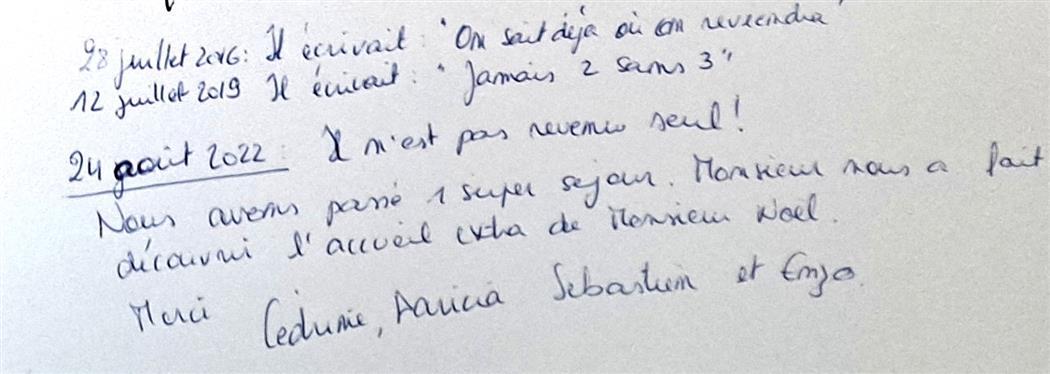 28 juillet 2016: Il écrivait : "On sait déjà où on reviendra"
12 juillet 2019 Il écrivait : "Jamais 2 sans 3"
24 août 2022 : Il n'est pas revenu seul !
Nous avons passé 1 super séjour. Monsieur nous a fait
découvrir l'accueil extra de Monsieur Noël.
Merci Sebastien et Enzo.